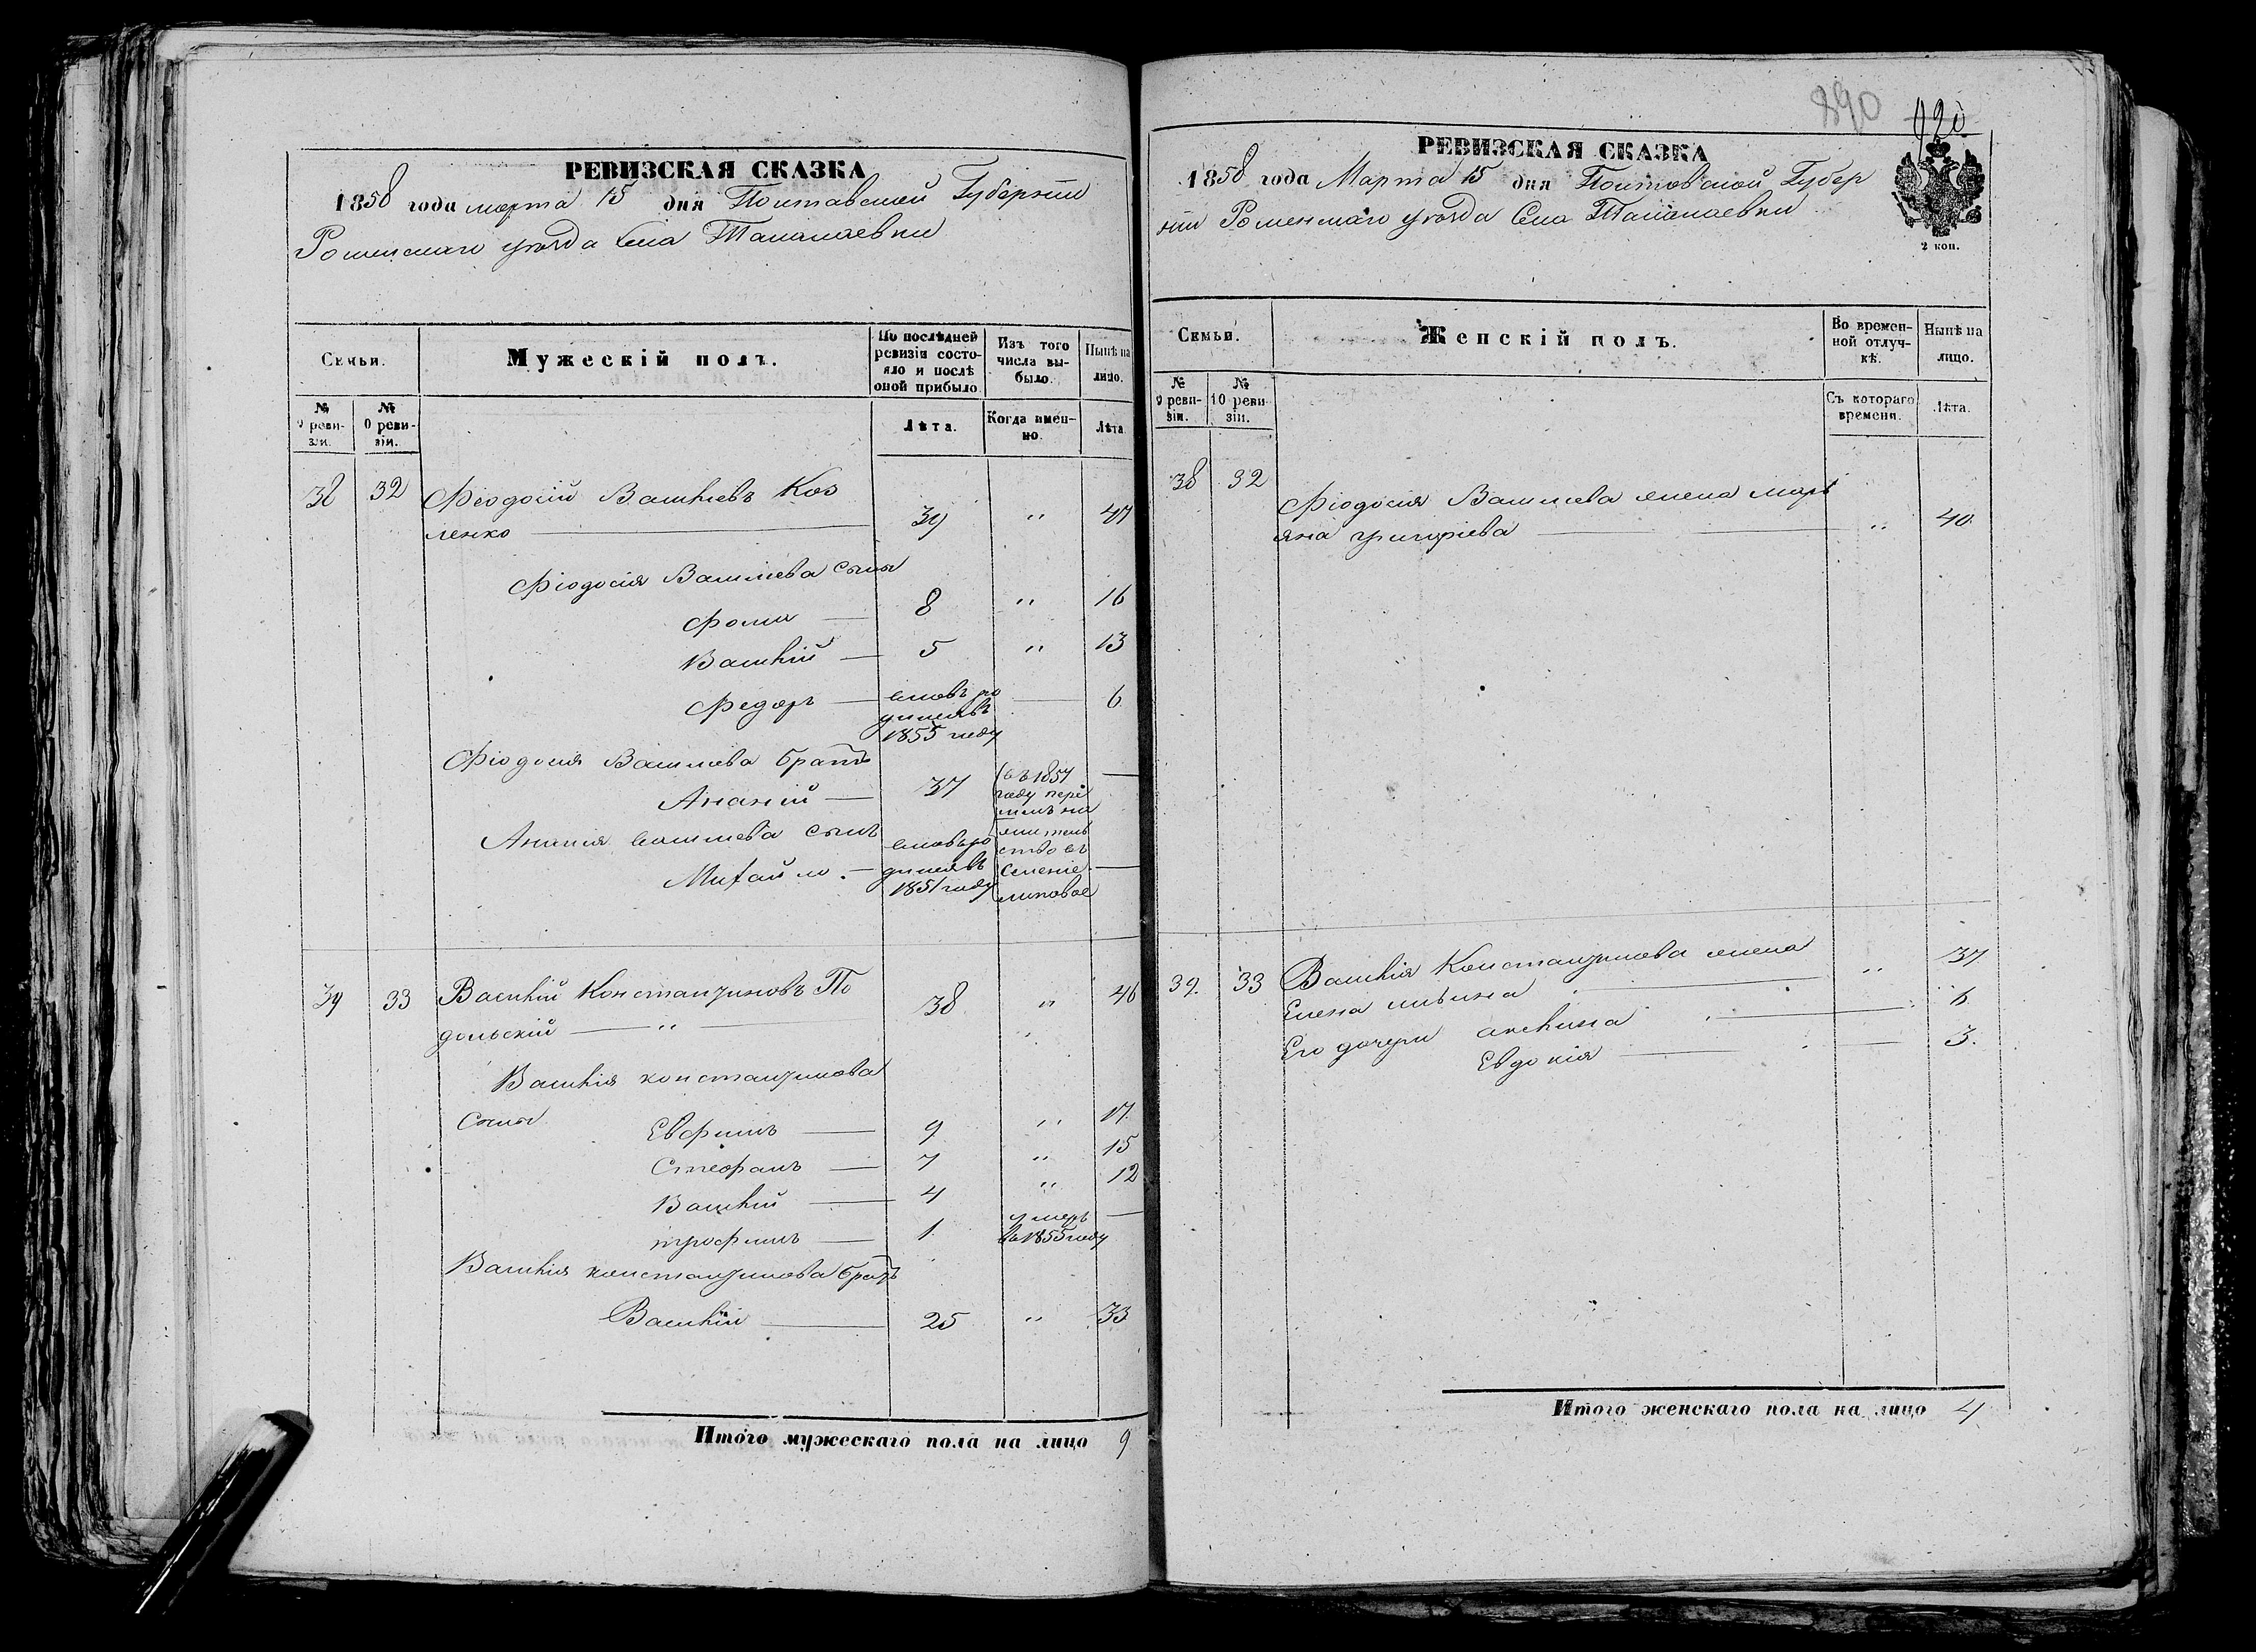 РЕВИЗСКАЯ СКАЗКА
1858 года марта 15 дня Полтавской Губерніи
Роменскаго уѣзда Села Талалаевки
Семьи.
Мужескій полъ.
По послѣдней ревизіи состояло и послѣ оной прибыло
Изъ того числа выбыло.
Нынѣ на лицо.
№ 9 ревизіи.
№ 10 ревизіи.
Лѣта.
Когда именно.
Лѣта
38 32 Феодосій Васильевъ Коз
ленко 39 " 47
Феодосія Васильева сыны
Фома 8 " 16
Василій 5 " 13
Федоръ вновь ро 6
дился въ
1855 году
Феодосія Васильева братъ
Ананій 37 въ 1857
году пере
Анания Васильева сынъ
Михайло вновь ро
дился въ
1851 году
ство въ
Селеніе
Липовое
39 33 Василій Константиновъ По
дольскій " 38 " 46
Василія Константинова
Сыны
Евфимъ 9 " 17.
Стефанъ 7 " 15
Василій 4 " 12
Трофимъ 1. умеръ
въ 1855 году
Василія Константинова братъ
Василій 25 " 33
Итого мужескаго пола на лицо 9
890
920
РЕВИЗСКАЯ СКАЗКА
1858 года Марта 15 дня Полтавской Губер
ніи Роменскаго уѣзда Села Талалаевки
2 коп.
Семьи.
Женскій полъ.
Во временной отлучкѣ.
Нынѣ на лицо.
№ 9 ревизіи.
№ 10 ревизіи.
Съ котораго времени.
Лѣта.
38 32
Феодосія Васильева жена Марь
яна Григоріева " 40.
39. 33 Василія Константинова жена
Елена " 37
Его дочери 6.
Евдокія 3.
Итого женскаго пола на лицо 4